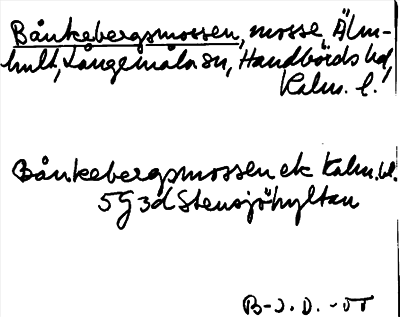 Bånkebergsmossen, mosse, Älm-
hult, Långemåla sn, Handbörds hd,
Kalm. l.
Bånkebergsmossen ek Kalm. bl.
5G 3d Stensjöhyltan
B-J. D. - JT